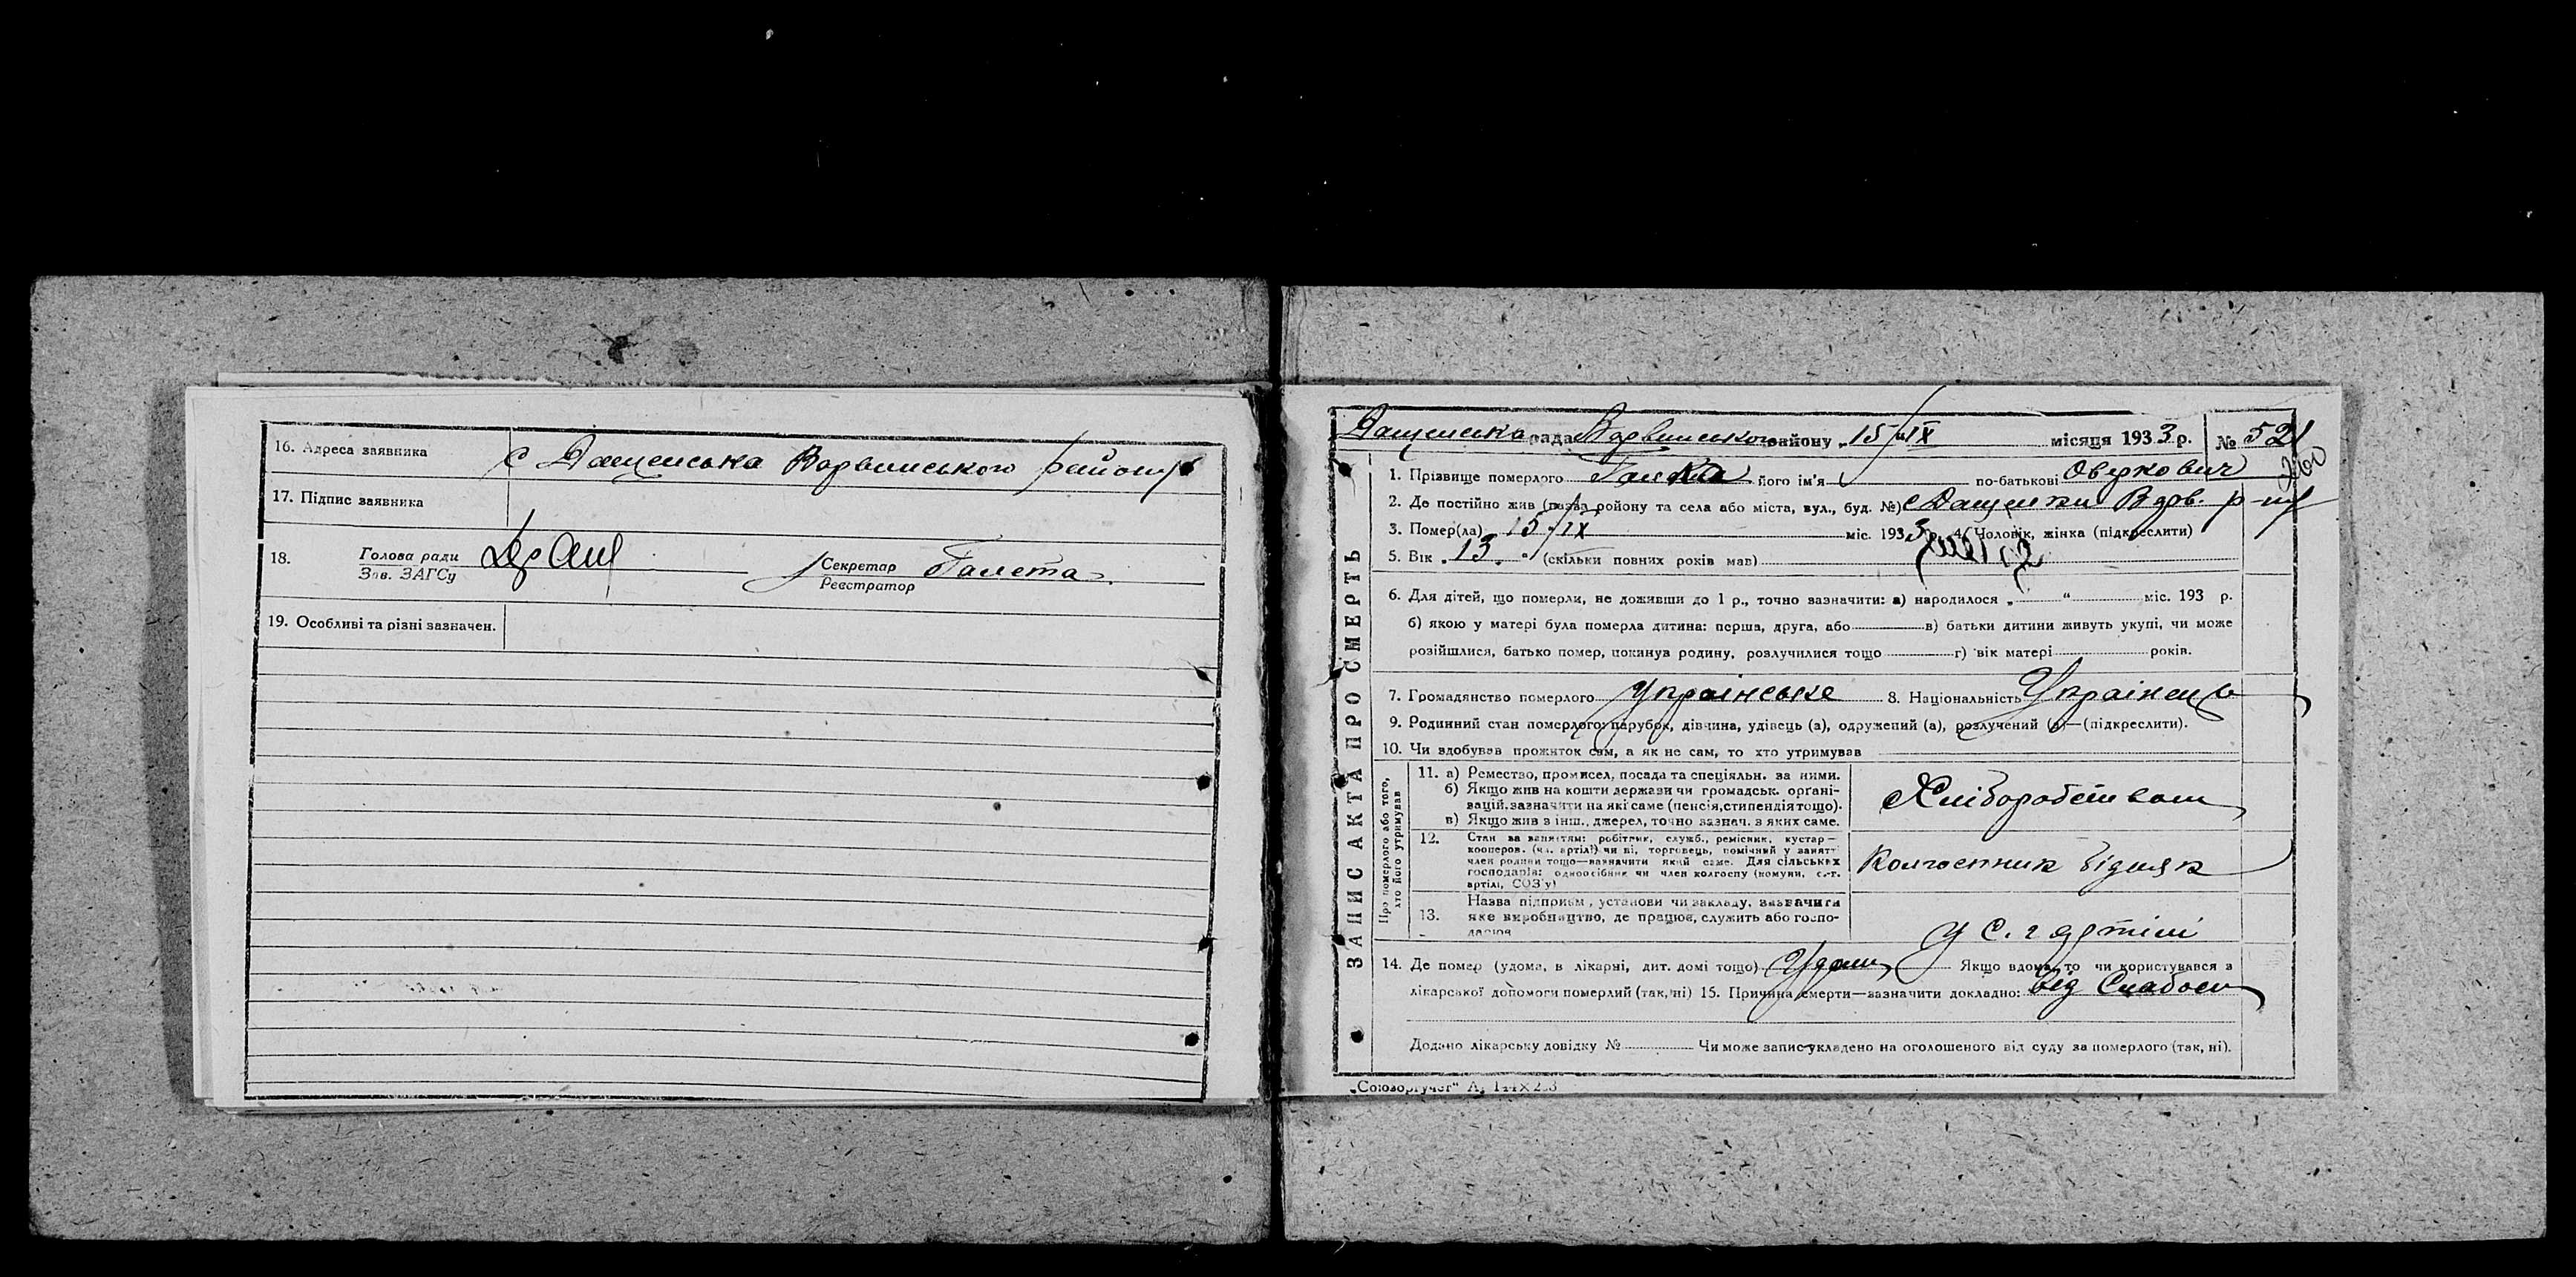 16. Адреса заявника с Дащенська Варвинського району
17. Підпис заявника
18. Голова ради
Зав. ЗАГСу
Секретар Галета
Реєстратор
19. Особливі та різні зазначен.
ЗАПИС АКТА ПРО СМЕРТЬ
Дащенська рада Варвинського району „15/"IX місяця 1933 р. № 521
260
1. Прізвище померлого його ім'я по-батькові Оверкович
2. Де постійно жив (назва району та села або міста, вул., буд. №) с Дащенки Варв. р-ну
3. Помер(ла) 15/IX міс. 1933 р. 4. Чоловік, жінка (підкреслити)
5. Вік 13 (скільки повних років мав)
6. Для дітей, що померли, не доживши до 1 р., точно зазначити: а) народилося „ " міс. 193 р.
б) якою у матері була померла дитина: перша, друга, або в) батьки дитини живуть укупі, чи може
розійшлися, батько помер, покинув родину, розлучилися тощо г) вік матері років.
7. Громадянство померлого Українське 8. Національність Українець
9. Родинний стан померлого: парубок, дівчина, удівець (а), одружений (а), розлучений (а)—(підкреслити).
10. Чи здобував прожиток сам, а як не сам, то хто утримував
Про померлого або того,
хто його утримував
11. а) Ремество, промисел, посада та спеціяльн. за ними.
б) Якщо жив на кошти держави чи громадськ. органі-
вацій, зазначити на які саме (пенсія, стипендія тощо).
в) Якщо жив з інш., джерел, точно зазнач. з яких саме.
Хліборобством
12. Стан за заняттям: робітник, служб., ремісник, кустар—
кооперов. (чл. артілі) чи ні, торговець, помічний у занятт
член родини тощо—зазначити який саме. Для сільських
господарів: одноосібник чи член колгоспу (комуни, с.-г.
артілі, СОЗ'у)
Колгоспник бідняк
13. Назва підприєм, установи чи закладу, зазначити
яке виробництво, де працює, служить або госпо-
дарює
у С. г артілі
14. Де помер (удома, в лікарні, дит. домі тощо) Удома Якщо вдома, то чи користувався з
лікарської допомоги померлий (так, ні) 15. Причина смерти—зазначити докладно: Від Слабости
Додано лікарську довідку № Чи може запис укладено на оголошеного від суду за померлого (так, ні).